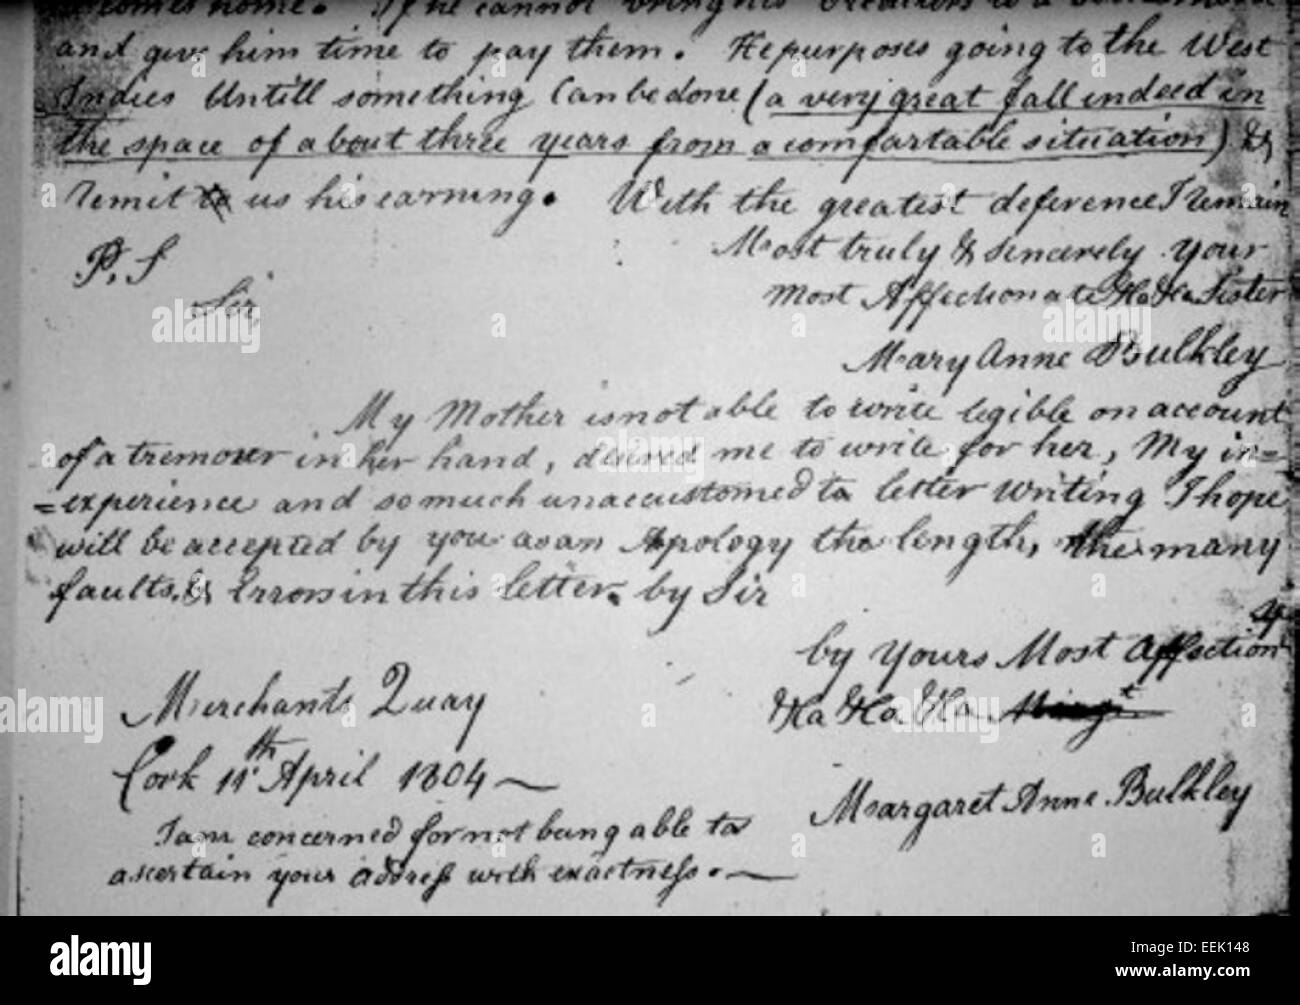 comes home. If he cannot bring his Creditors to a
and give him time to pay them. He purposes going to the West
Indies Untill something Can be done (a very great fall indeed in
the space of about three years from a comfortable situation) &
remit to us his earning. With the greatest deference I remain
Most truly & sincerely your
most Affectionate &Ha &Ha Sister
P. S
Sir,
Mary Anne Bulkley
My Mother is not able to write legible on account
of a tremour in her hand, desired me to write for her, My in=
=experience and so much unaccustomed to letter writing I hope
will be accepted by you as an Apology the length, the many
faults, & Errors in this letter. by Sir
by yours Most Affection
&Ha &Ha &Ha
Merchants Quay
Cork 11th April 1804
Margaret Anne Bulkley
I am concerned for not being able to
ascertain your address with exactness.
alamy
Image ID: EEK148
www.alamy.com